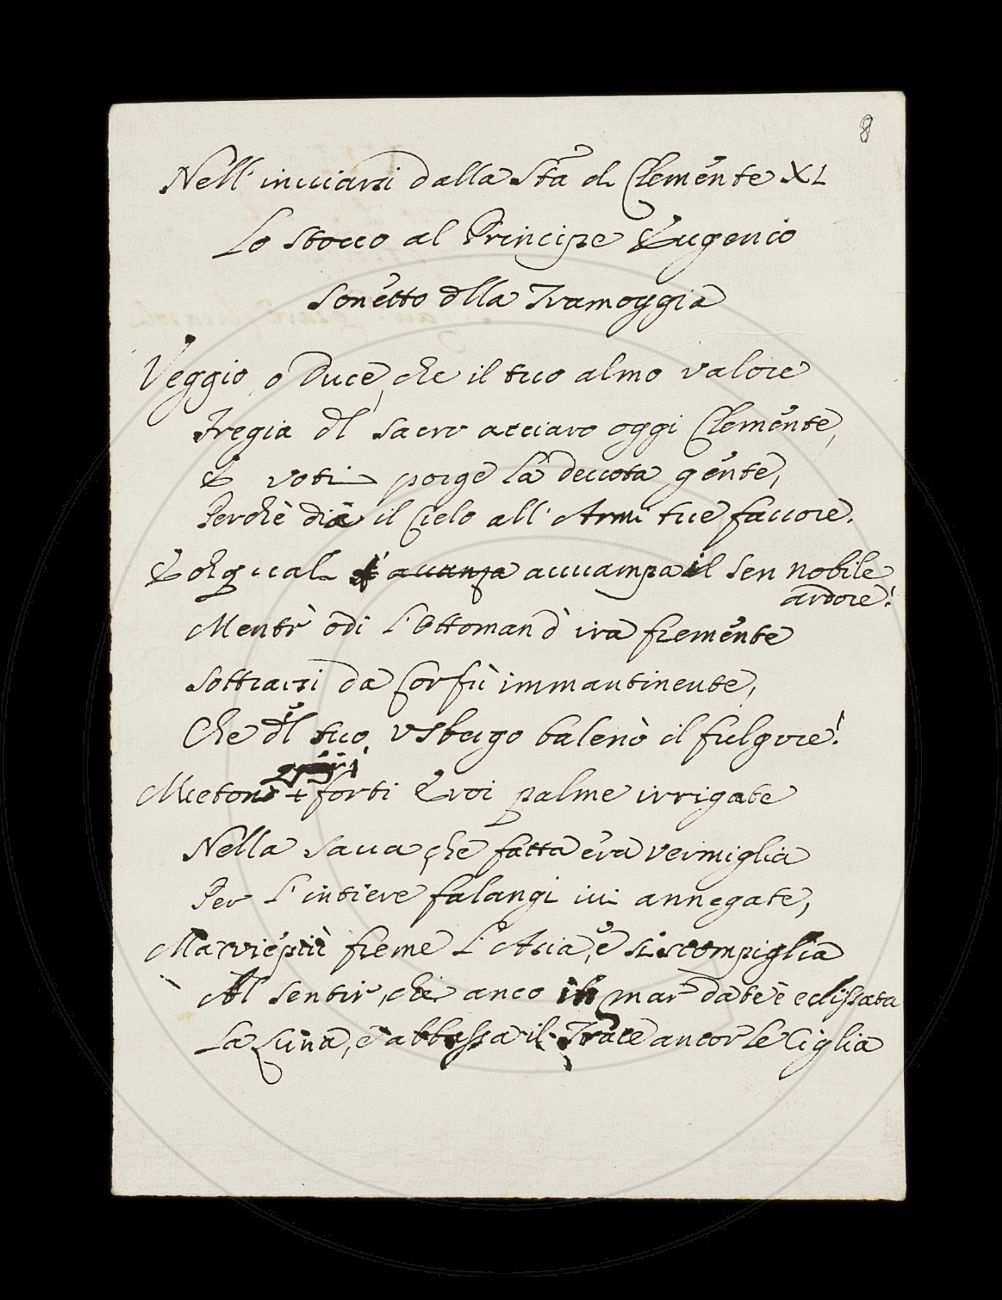 8
Nell' inuiarsi dalla Stà di Clemente XI
Lo stocco al Principe Eugenio
Sonetto dlla Tramoggia
Veggio, o Duce, che il tuo almo valore
Fregia dl sacro acciaro oggi Clemente,
E voti porge la deuota gente,
Perchè dia il Cielo all' Armi tue fauore.
E oh qual auanza auuampa il sen nobile
ardore!
Mentr' odi l'Ottoman d' ira fremente
Sottrarsi da Corfù immantinente,
Che dl tuo usbergo balenò il fulgore!
Mieton forti Eroi palme irrigate
Nella Saua, che fatta era vermiglia
Per l'intiere falangi iui annegate,
Ma vie più freme l'Asia, e si scompiglia
Al sentir, che anco in mar da te è eclissata
La Luna, e abbassa il Trace ancor le Ciglia